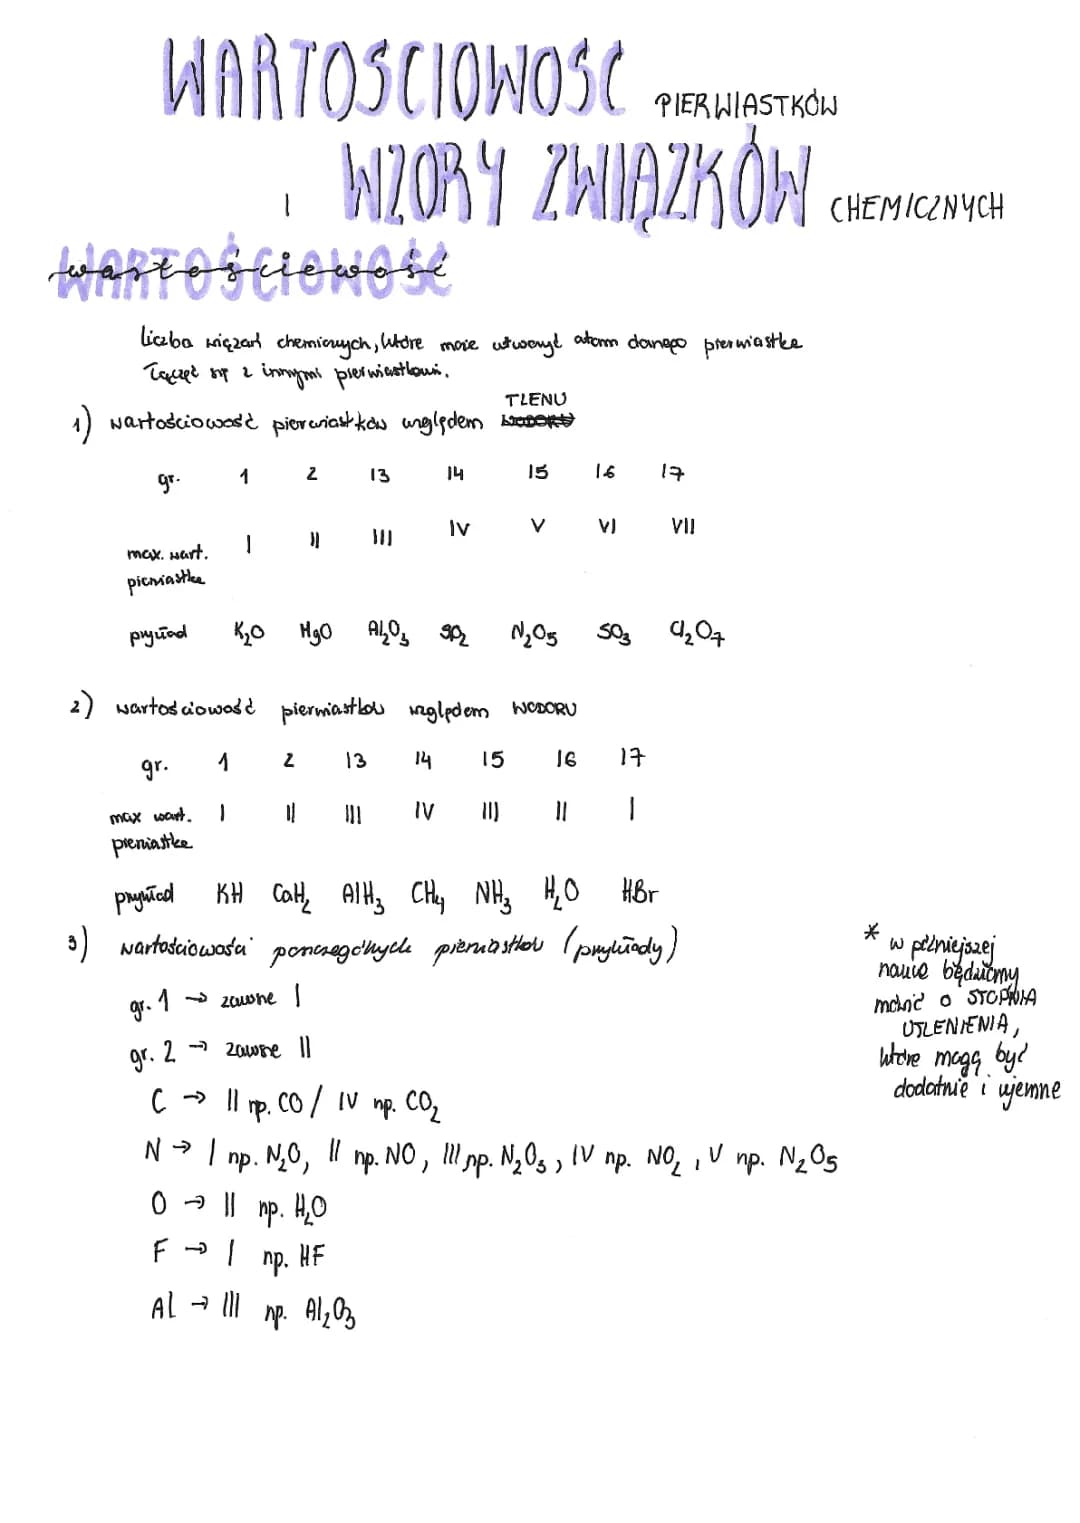 WARTOSCIOWOSC PIERWIASTKÓW
I WZORY ZWIĄZKÓW CHEMICZNYCH
WARTOŚCIOWOŚĆ
liczba wiązań chemicznych, które może utworzyć atom danego pierwiastka
łącząc się z innymi pierwiastkami.
1) wartościowość pierwiastków względem TLENU
gr. 1 2 13 14 15 16 17
max. wart. I II III IV V VI VII
pierwiastka
przykład K₂O MgO Al₂O₃ SO₂ N₂O₅ SO₃ Cl₂O₇
2) wartościowość pierwiastków względem WODORU
gr. 1 2 13 14 15 16 17
max wart. I II III IV III II I
pierwiastka
przykład KH CaH₂ AlH₃ CH₄ NH₃ H₂O HBr
3) wartościowości poszczególnych pierwiastków (przykłady)
gr. 1 → zawsze I
gr. 2 → zawsze II
C → II np. CO / IV np. CO₂
N → I np. N₂O, II np. NO, III np. N₂O₃, IV np. NO₂, V np. N₂O₅
O → II np. H₂O
F → I np. HF
Al → III np. Al₂O₃
* w późniejszej
nauce będziemy
mówić o STOPNIA
UTLENIENIA,
które mogą być
dodatnie i ujemne